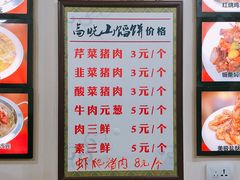 高晓山馅饼价格
芹菜猪肉 3元/个
韭菜猪肉 3元/个
酸菜猪肉 3元/个
牛肉元葱 5元/个
肉三鲜 5元/个
素三鲜 5元/个
虾仁猪肉 8元/个
红烧鸡